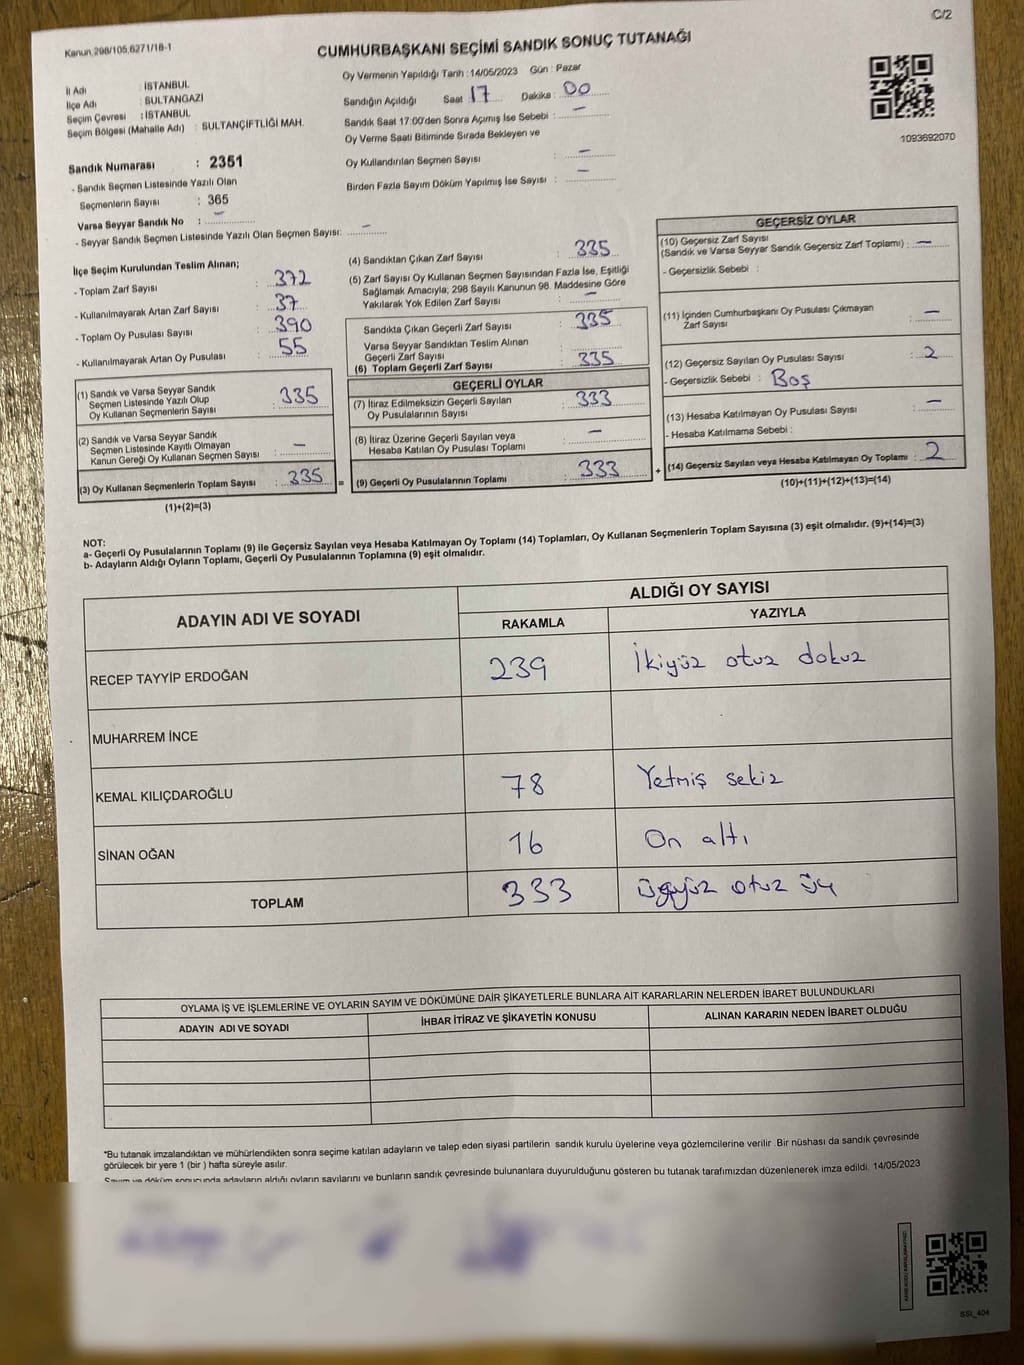 C/2
Kanun 298/105,6271/18-1
CUMHURBAŞKANI SEÇİMİ SANDIK SONUÇ TUTANAĞI
İl Adı : İSTANBUL
İlçe Adı : SULTANGAZİ
Seçim Çevresi : İSTANBUL
Seçim Bölgesi (Mahalle Adı) : SULTANÇİFTLİĞİ MAH.
Sandık Numarası : 2351
- Sandık Seçmen Listesinde Yazılı Olan
Seçmenlerin Sayısı : 365
Varsa Seyyar Sandık No : –
- Seyyar Sandık Seçmen Listesinde Yazılı Olan Seçmen Sayısı: –
Oy Vermenin Yapıldığı Tarih : 14/05/2023 Gün : Pazar
Sandığın Açıldığı Saat 17 Dakika : 00
Sandık Saat 17:00'den Sonra Açımış İse Sebebi : –
Oy Verme Saati Bitiminde Sırada Bekleyen ve
Oy Kullandırılan Seçmen Sayısı : –
Birden Fazla Sayım Döküm Yapılmış İse Sayısı : –
1093692070
İlçe Seçim Kurulundan Teslim Alınan;
- Toplam Zarf Sayısı : 372
- Kullanılmayarak Artan Zarf Sayısı : 37
- Toplam Oy Pusulası Sayısı : 390
- Kullanılmayarak Artan Oy Pusulası : 55
(1) Sandık ve Varsa Seyyar Sandık
Seçmen Listesinde Yazılı Olup
Oy Kullanan Seçmenlerin Sayısı : 335
(2) Sandık ve Varsa Seyyar Sandık
Seçmen Listesinde Kayıtlı Olmayan
Kanun Gereği Oy Kullanan Seçmen Sayısı : –
(3) Oy Kullanan Seçmenlerin Toplam Sayısı : 335
(1)+(2)=(3)
(4) Sandıktan Çıkan Zarf Sayısı : 335
(5) Zarf Sayısı Oy Kullanan Seçmen Sayısından Fazla İse, Eşitliği
Sağlamak Amacıyla; 298 Sayılı Kanunun 98. Maddesine Göre
Yakılarak Yok Edilen Zarf Sayısı : –
Sandıkta Çıkan Geçerli Zarf Sayısı : 335
Varsa Seyyar Sandıktan Teslim Alınan
Geçerli Zarf Sayısı :
(6) Toplam Geçerli Zarf Sayısı : 335
GEÇERLİ OYLAR
(7) İtiraz Edilmeksizin Geçerli Sayılan
Oy Pusulalarının Sayısı : 333
(8) İtiraz Üzerine Geçerli Sayılan veya
Hesaba Katılan Oy Pusulası Toplamı : –
= (9) Geçerli Oy Pusulalarının Toplamı : 333 +
GEÇERSİZ OYLAR
(10) Geçersiz Zarf Sayısı
(Sandık ve Varsa Seyyar Sandık Geçersiz Zarf Toplamı) : –
- Geçersizlik Sebebi :
(11) İçinden Cumhurbaşkanı Oy Pusulası Çıkmayan
Zarf Sayısı : –
(12) Geçersiz Sayılan Oy Pusulası Sayısı : 2
- Geçersizlik Sebebi : Boş
(13) Hesaba Katılmayan Oy Pusulası Sayısı : –
- Hesaba Katılmama Sebebi :
(14) Geçersiz Sayılan veya Hesaba Katılmayan Oy Toplamı : 2
(10)+(11)+(12)+(13)=(14)
NOT:
a- Geçerli Oy Pusulalarının Toplamı (9) ile Geçersiz Sayılan veya Hesaba Katılmayan Oy Toplamı (14) Toplamları, Oy Kullanan Seçmenlerin Toplam Sayısına (3) eşit olmalıdır. (9)+(14)=(3)
b- Adayların Aldığı Oyların Toplamı, Geçerli Oy Pusulalarının Toplamına (9) eşit olmalıdır.
ADAYIN ADI VE SOYADI ALDIĞI OY SAYISI
RAKAMLA YAZIYLA
RECEP TAYYİP ERDOĞAN 239 İkiyüz otuz dokuz
MUHARREM İNCE
KEMAL KILIÇDAROĞLU 78 Yetmiş sekiz
SİNAN OĞAN 16 On altı
TOPLAM 333 üçyüz otuz üç
OYLAMA İŞ VE İŞLEMLERİNE VE OYLARIN SAYIM VE DÖKÜMÜNE DAİR ŞİKAYETLERLE BUNLARA AİT KARARLARIN NELERDEN İBARET BULUNDUKLARI
ADAYIN ADI VE SOYADI İHBAR İTİRAZ VE ŞİKAYETİN KONUSU ALINAN KARARIN NEDEN İBARET OLDUĞU
*Bu tutanak imzalandıktan ve mühürlendikten sonra seçime katılan adayların ve talep eden siyasi partilerin sandık kurulu üyelerine veya gözlemcilerine verilir .Bir nüshası da sandık çevresinde
görülecek bir yere 1 (bir ) hafta süreyle asılır.
Sayım ve döküm sonucunda adayların aldığı oyların sayılarını ve bunların sandık çevresinde bulunanlara duyurulduğunu gösteren bu tutanak tarafımızdan düzenlenerek imza edildi. 14/05/2023
SSI_404